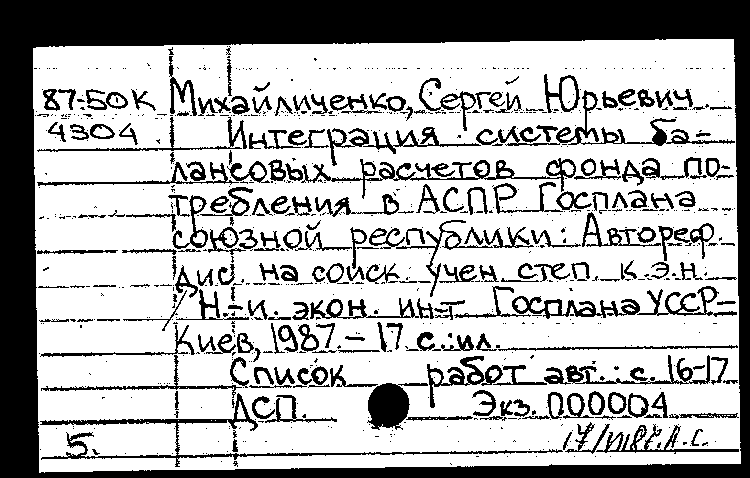 87-50К Михайличенко, Сергей Юрьевич.
4304. Интеграция системы ба-
лансовых расчетов фонда по-
требления в АСПР Госплана
союзной республики: Автореф.
дис. на соиск. учен. степ. к.э.н.
Н.-и. экон. ин-т Госплана УССР-
Киев, 1987.- 17 с.:ил.
Список работ авт.: с. 16-17
ДСП. Экз. 000004
5.